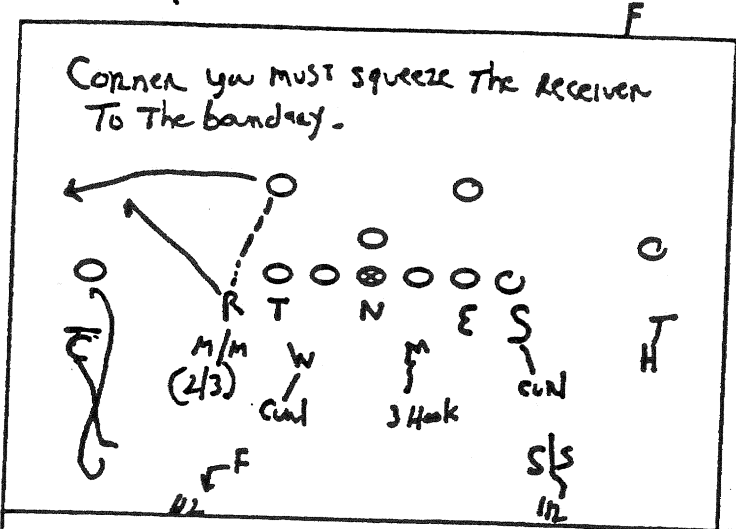 F
Corner you must squeeze The Receiver
To The boundary.
R T N E S
C
M/M
(2/3)
W
M
T
H
Curl
3 Hook
curl
F
S S
1/2
1/2